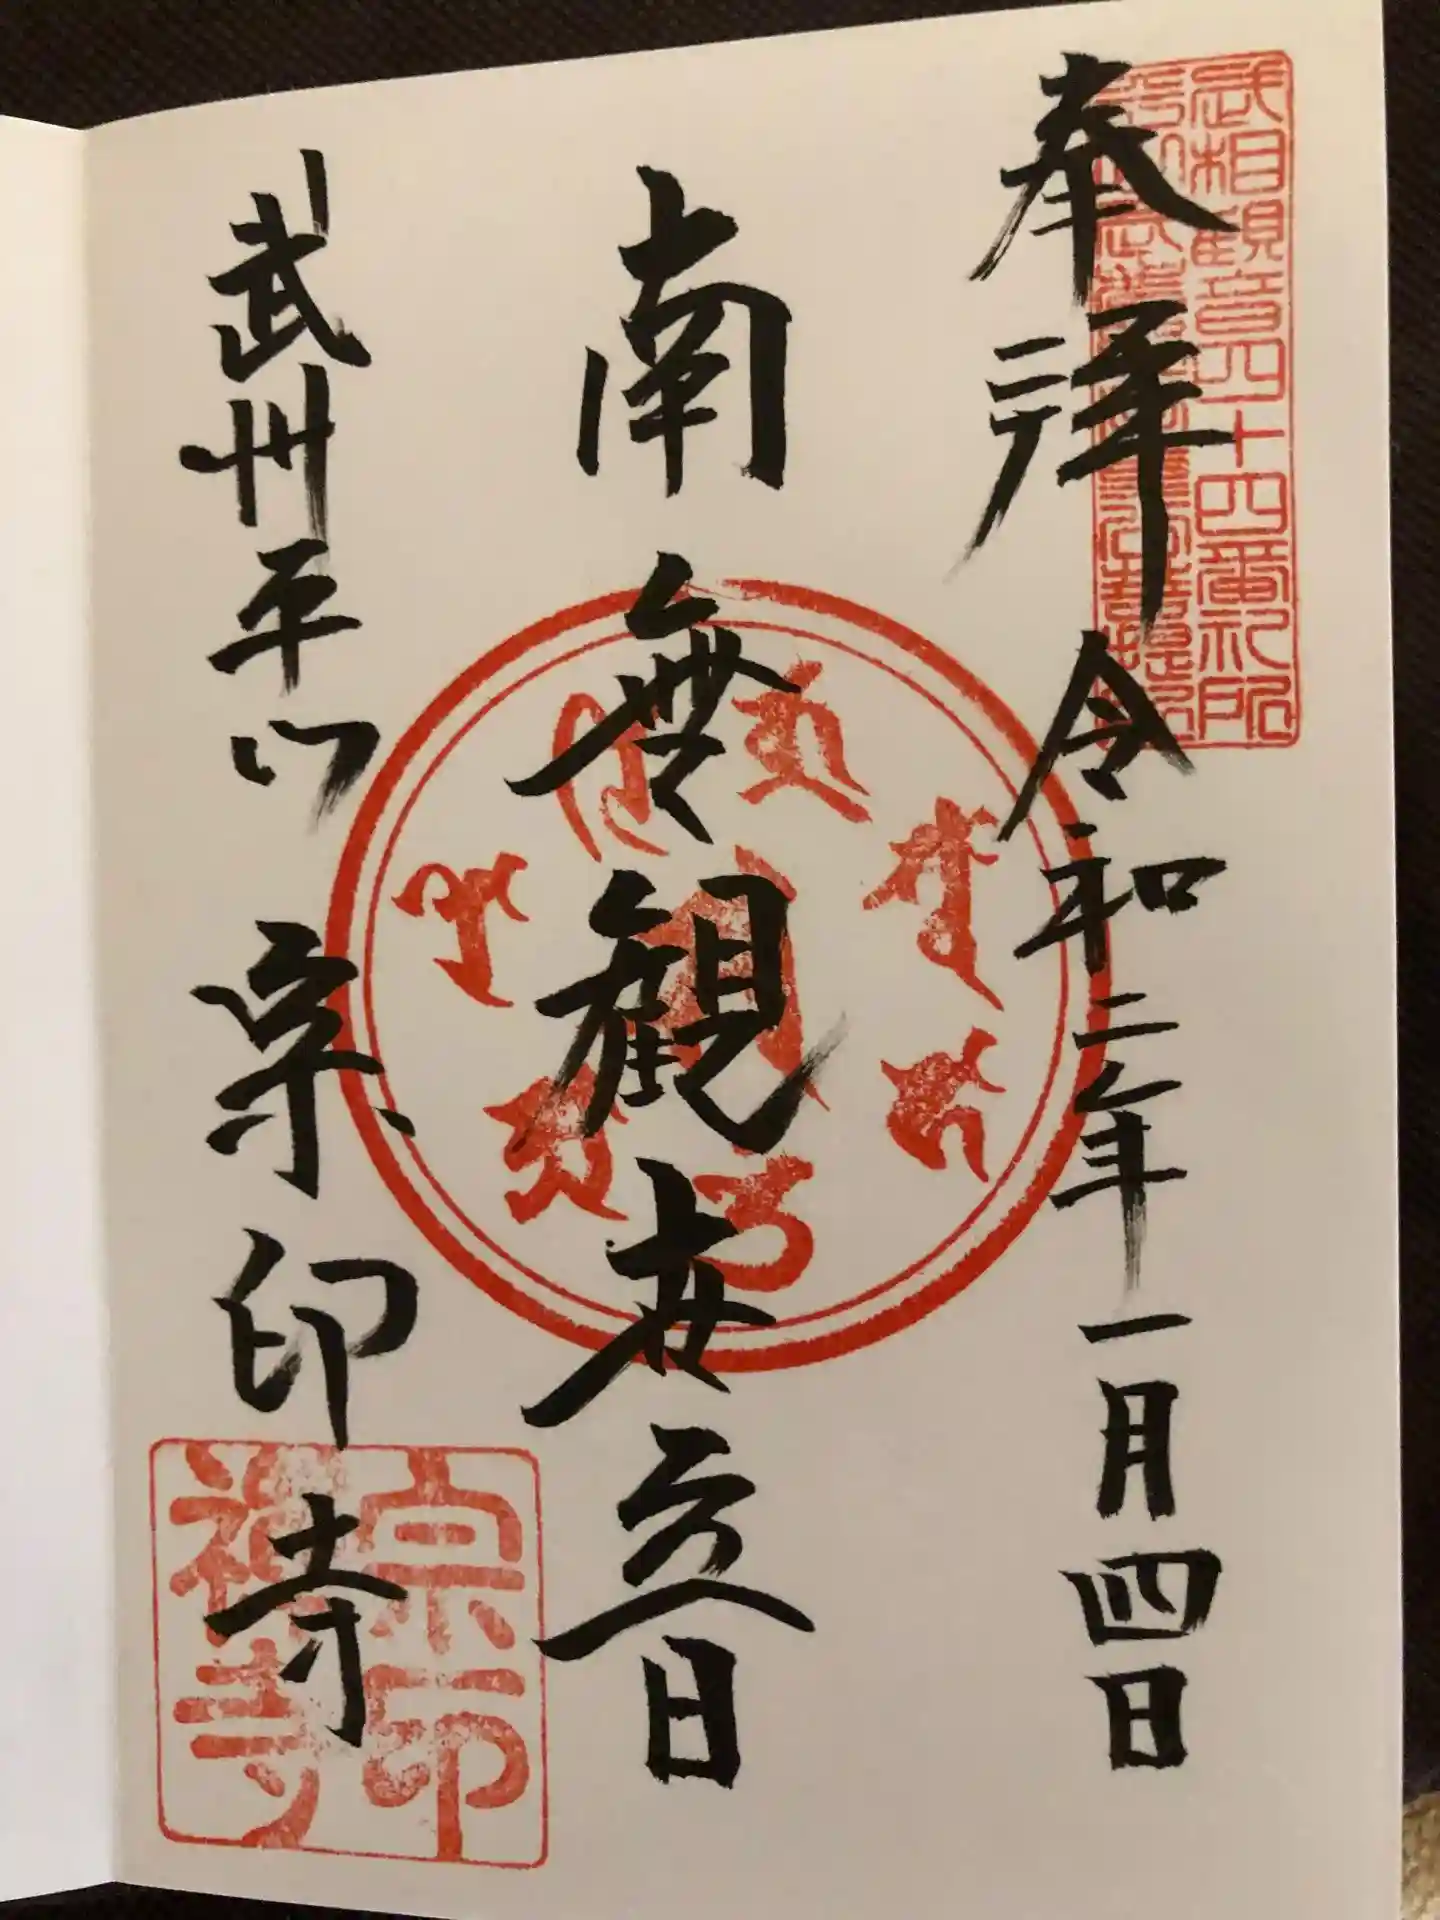 武相観音四十四番札所
奉拝 令和二年一月四日
南無観世音
武州平山 宗印寺
宗印
禅寺